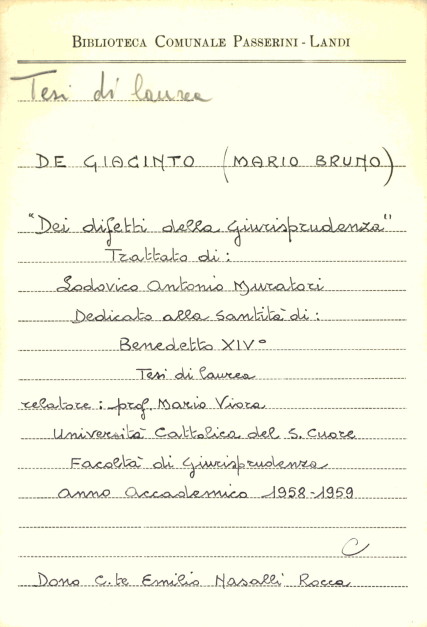 BIBLIOTECA COMUNALE PASSERINI - LANDI
Tesi di laurea
DE GIACINTO (MARIO BRUNO)
"Dei difetti della Giurisprudenza"
Trattato di:
Lodovico Antonio Muratori
Dedicato alla Santità di:
Benedetto XIV°
Tesi di laurea
relatore: prof. Mario Viora
Università Cattolica del S. Cuore
Facoltà di Giurisprudenza
anno Accademico 1958-1959
C
Dono C.te Emilio Nasalli Rocca